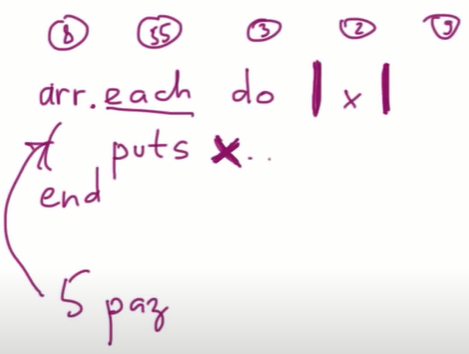 8 55 3 2 9
arr.each do |x|
puts x...
end
5 раз